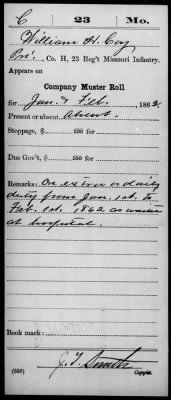 C 23 Mo.
William H. Coy
Pvt., Co. H, 23 Reg't Missouri Infantry.
Appears on
Company Muster Roll
for Jan & Feb., 1862.
Present or absent Absent.
Stoppage, $ 100 for
Due Gov't, $ 100 for
Remarks: On extra or daily
duty from Jan. 1st. to
Feb. 1st. 1862 as
at hospital.
Book mark:
J. T. Smith
(556) Copyist.